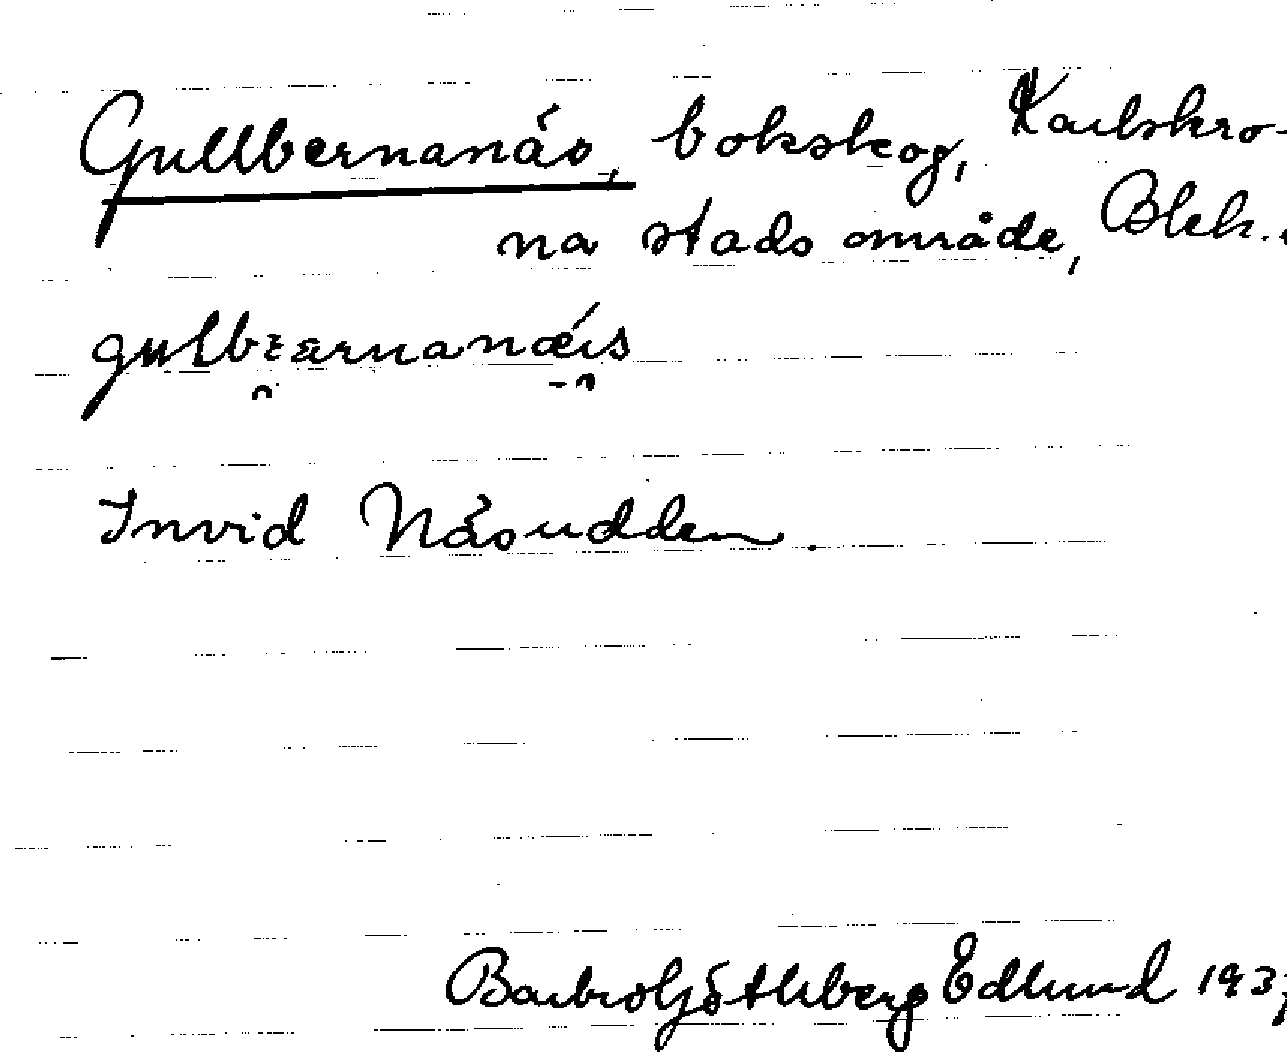 Gullbernanäs, bokskog, Karlskro-
na stads område, Blek.
gulbæarnanæis
Invid Näsudden.
Barbro Göthberg Edlund 193